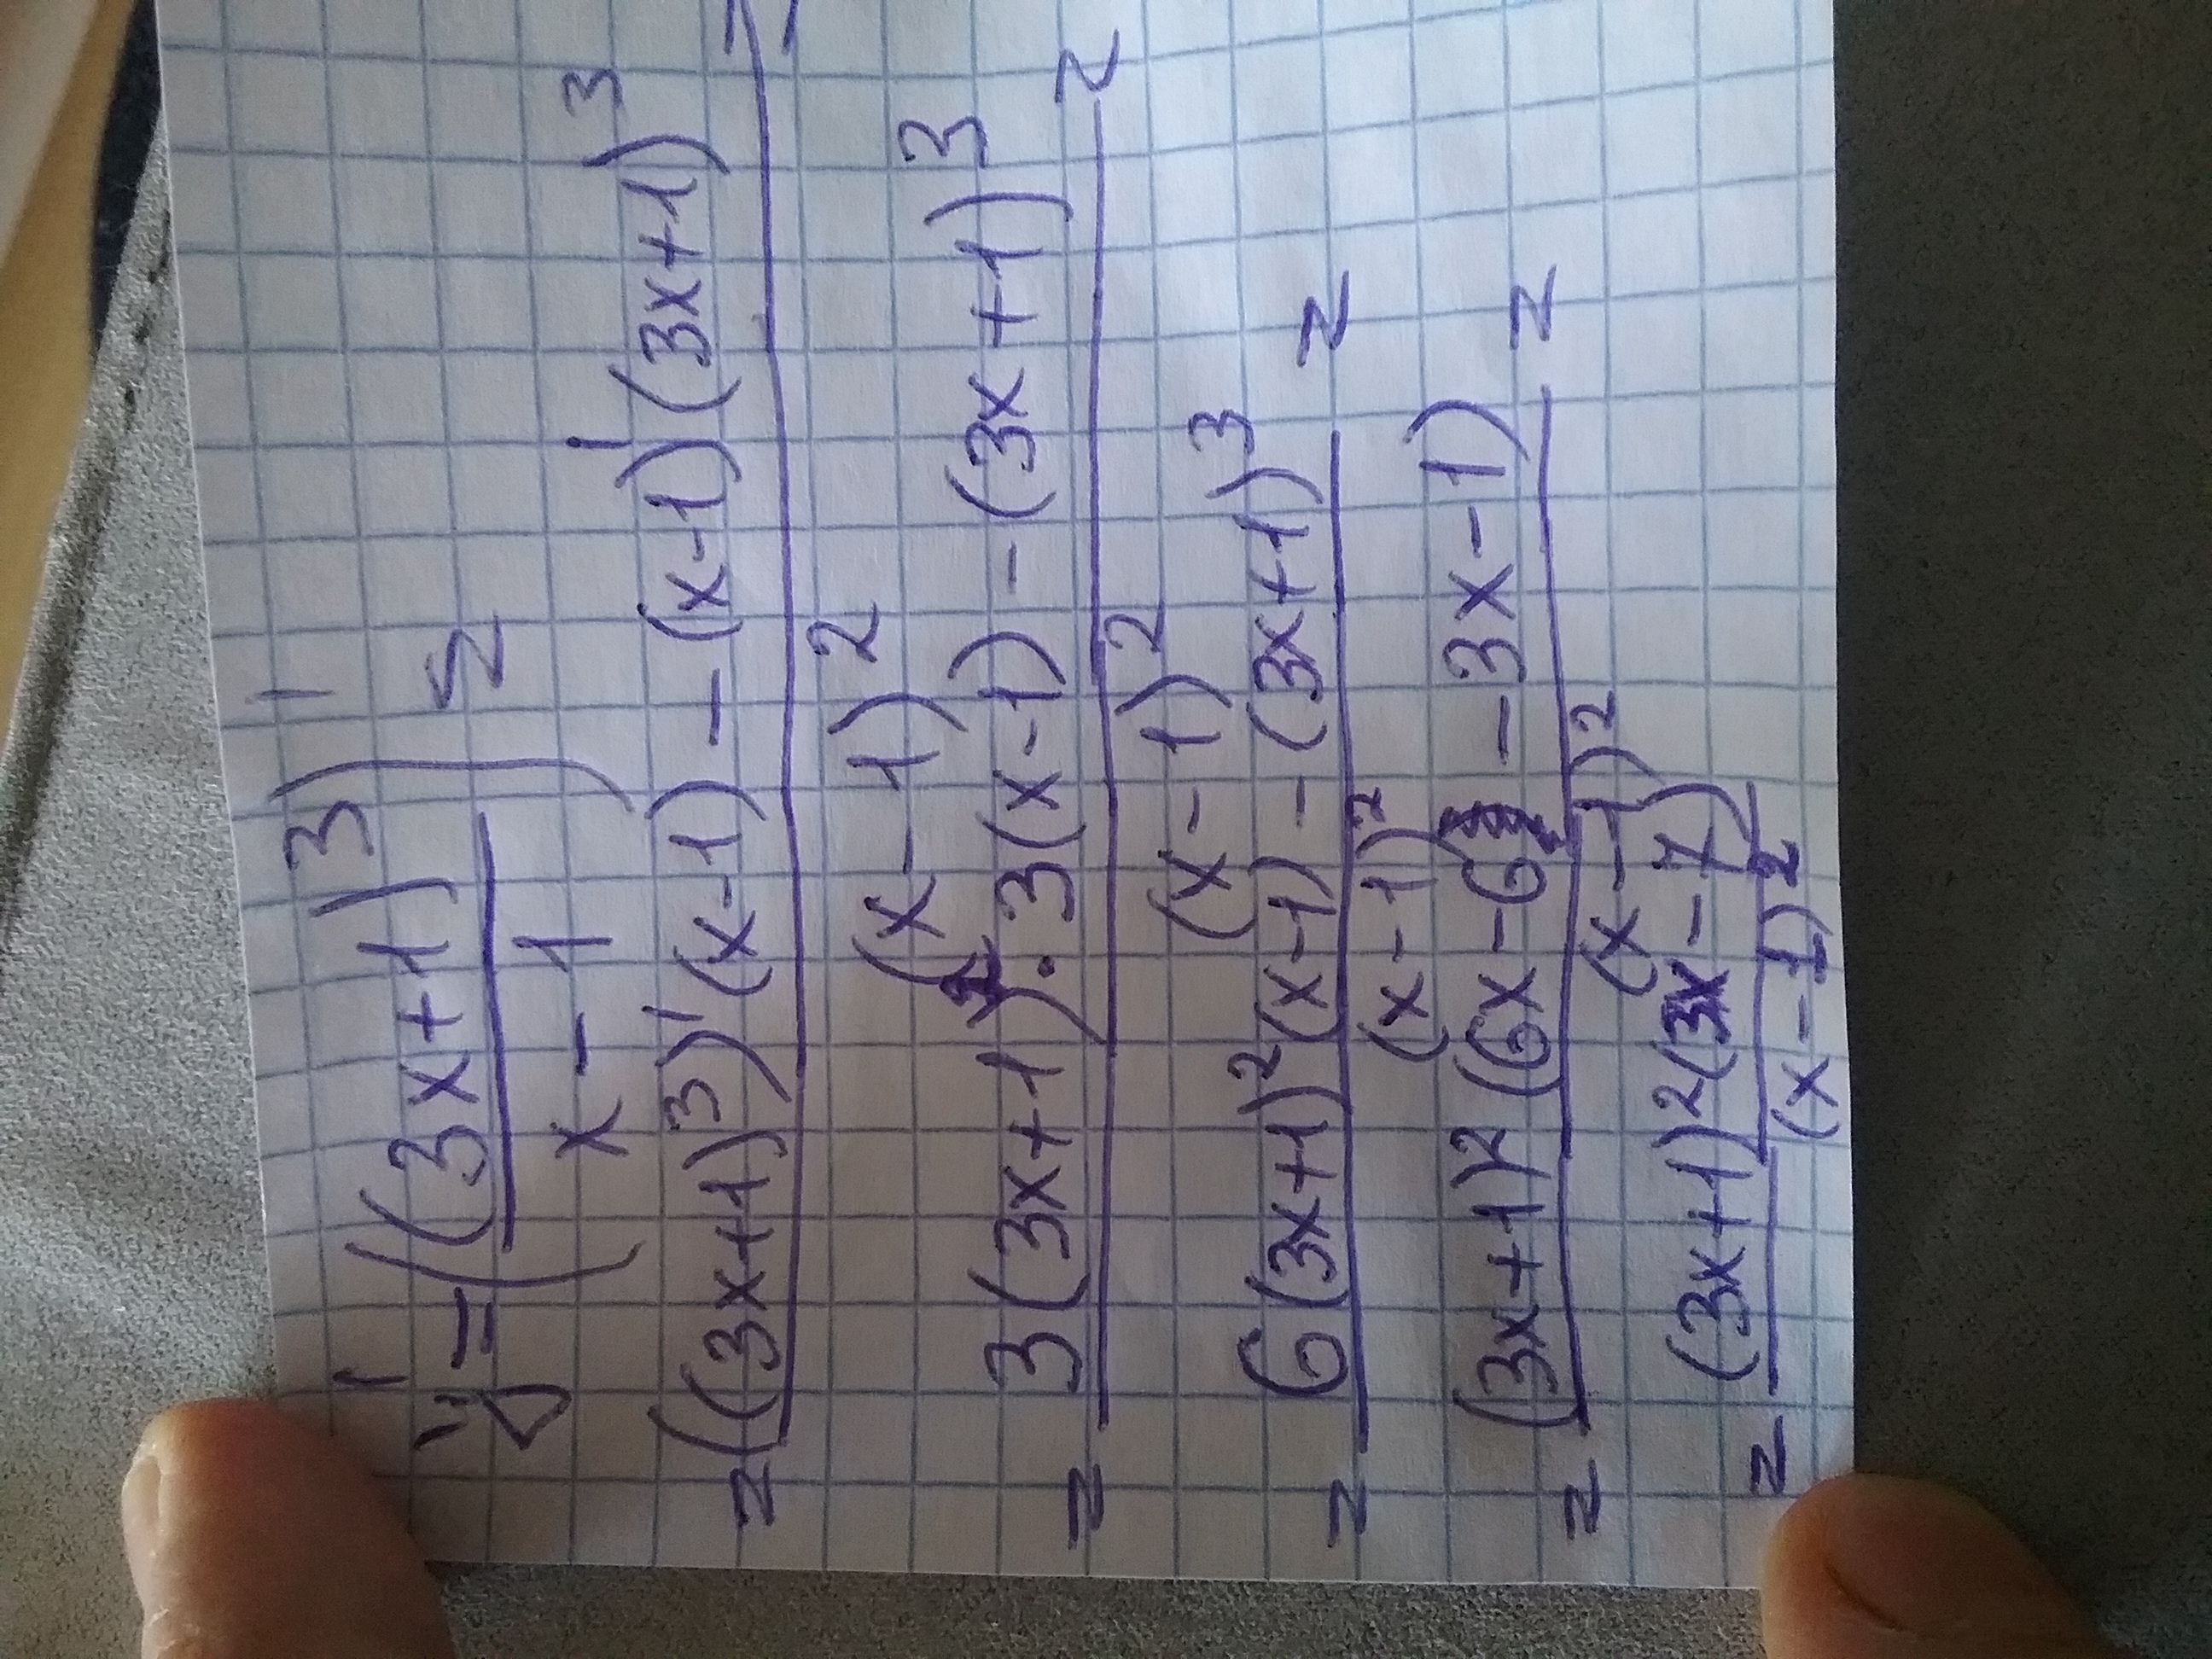 y' = ((3x+1)^3 / (x-1))' =
= (((3x+1)^3)'(x-1) - (x-1)'(3x+1)^3) / (x-1)^2 =
= (3(3x+1)^2 · 3(x-1) - (3x+1)^3) / (x-1)^2 =
= (6(3x+1)^2(x-1) - (3x+1)^3) / (x-1)^2 =
= ((3x+1)^2(6x-6 - 3x-1)) / (x-1)^2 =
= ((3x+1)^2(3x-7)) / (x-1)^2